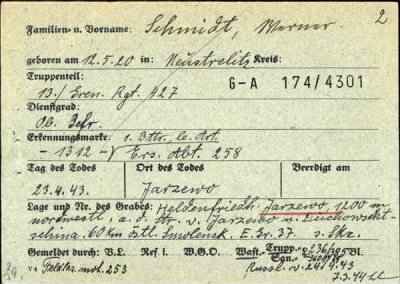 2
Familien- u. Vorname: Schmidt, Werner
geboren am 12.5.20 in: Neustrelitz Kreis:
Truppenteil:
G-A 174/4301
13./Gren. Rgt. 427
Dienstgrad:
Ob. Gefr.
Erkennungsmarke: 1. Bttr. le. Art.
-1312- Ers. Abt. 258
Tag des Todes Ort des Todes Beerdigt am
23.4.43. Jarzewo
Lage und Nr. des Grabes: Heldenfriedh. Jarzewo, 1200 m
nordwestl. a. d. Str. v. Jarzewo n. Duchowscht-
schina. 60 km östl. Smolensk. E. Gr. 37. s. Skz.
Gemeldet durch: V.L. Ref. i. W.G.O. Wast.- Trupp.- Bl.
Sgn.-
Feldlaz. mot. 253 Russl. v. 24.4.43
29. 7.3.44